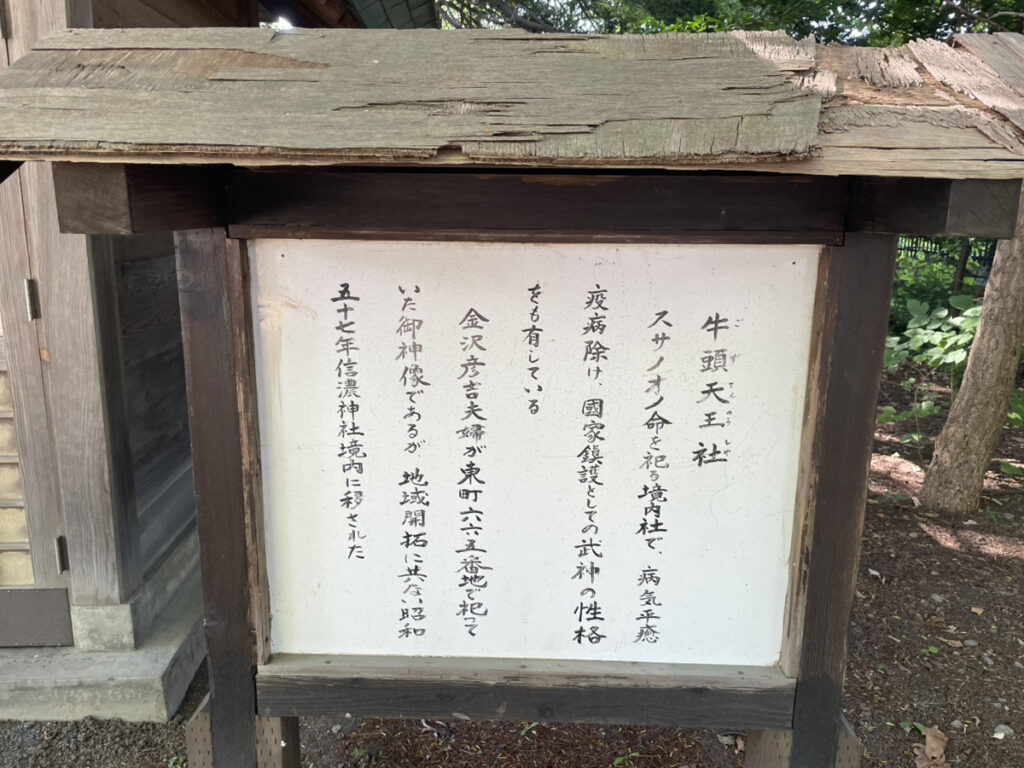 牛頭天王社
ごずてんのうしや
スサノオノ命を祀る境内社で、病気平癒
疫病除け、國家鎮護としての武神の性格
をも有している
金沢彦吉夫婦が東町六六五番地で祀って
いた御神像であるが 地域開拓に共ない昭和
五十七年信濃神社境内に移された